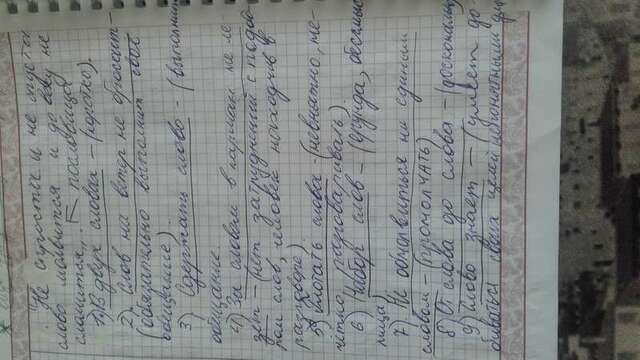 "Не спустя и не
слово молвится и до веку не
сломится". пословица
1) В двух словах - (коротко).
2) Слов на ветер не бросит -
(обязательно выполнит своё
обещание).
3) Сдержать слово - (выполнить
обещание
4) За словом в карман не ле-
зет - (нет затруднений с подбо-
ром слов, человек находчив в
разговоре).
5) Глотать слова - (невнятно, не-
чётко разговаривать).
6) Набор слов - (ерунда, бессмыс-
лица)
7) Не обмолвиться ни единым
словом - (промолчать)
8) От слова до слова - (досконально
9) Слово знает - (умеет до-
биваться своих целей